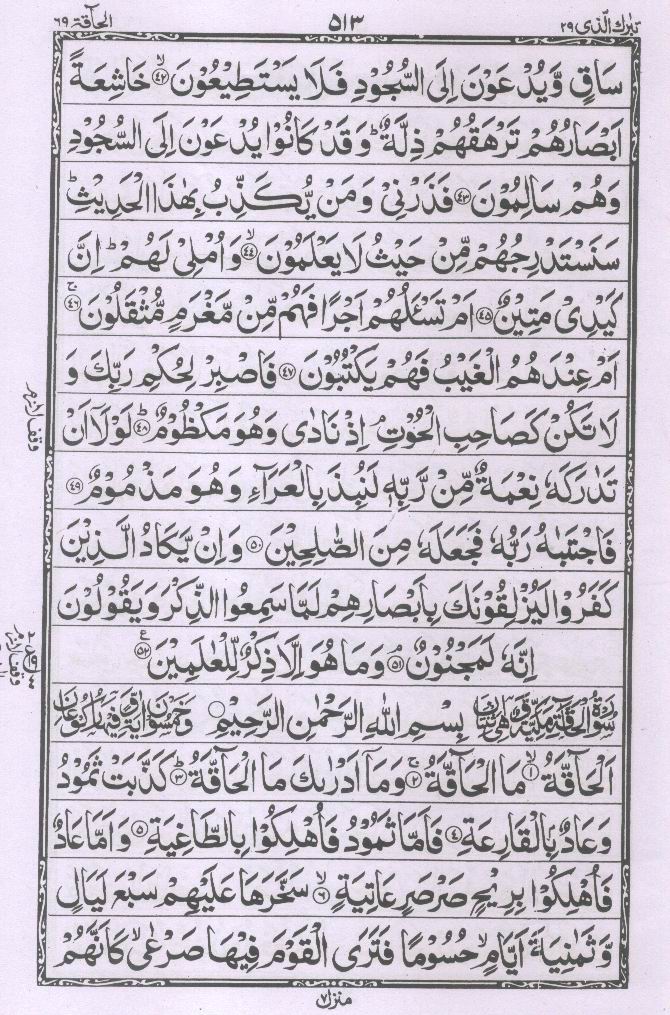 تبٰرك الّذى ٢٩
٥١٣
الحاقة ٦٩
سَاقٍ وَّيُدْعَوْنَ اِلَى السُّجُوْدِ فَلَا يَسْتَطِيْعُوْنَ ۙ﴿٤٢﴾ خَاشِعَةً
اَبْصَارُهُمْ تَرْهَقُهُمْ ذِلَّةٌ ؕ وَقَدْ كَانُوْا يُدْعَوْنَ اِلَى السُّجُوْدِ
وَهُمْ سَالِمُوْنَ ﴿٤٣﴾ فَذَرْنِىْ وَمَنْ يُّكَذِّبُ بِهٰذَا الْحَدِيْثِ ؕ
سَنَسْتَدْرِجُهُمْ مِّنْ حَيْثُ لَا يَعْلَمُوْنَ ۙ﴿٤٤﴾ وَاُمْلِىْ لَهُمْ ؕ اِنَّ
كَيْدِىْ مَتِيْنٌ ﴿٤٥﴾ اَمْ تَسْئَلُهُمْ اَجْرًا فَهُمْ مِّنْ مَّغْرَمٍ مُّثْقَلُوْنَ ۚ﴿٤٦﴾
اَمْ عِنْدَهُمُ الْغَيْبُ فَهُمْ يَكْتُبُوْنَ ﴿٤٧﴾ فَاصْبِرْ لِحُكْمِ رَبِّكَ وَ
لَا تَكُنْ كَصَاحِبِ الْحُوْتِ ۘ اِذْ نَادٰى وَهُوَ مَكْظُوْمٌ ؕ﴿٤٨﴾ لَوْلَاۤ اَنْ
تَدٰرَكَهٗ نِعْمَةٌ مِّنْ رَّبِّهٖ لَنُبِذَ بِالْعَرَآءِ وَهُوَ مَذْمُوْمٌ ﴿٤٩﴾
فَاجْتَبٰهُ رَبُّهٗ فَجَعَلَهٗ مِنَ الصّٰلِحِيْنَ ﴿٥٠﴾ وَاِنْ يَّكَادُ الَّذِيْنَ
كَفَرُوْا لَيُزْلِقُوْنَكَ بِاَبْصَارِهِمْ لَمَّا سَمِعُوا الذِّكْرَ وَيَقُوْلُوْنَ
اِنَّهٗ لَمَجْنُوْنٌ ۘ﴿٥١﴾ وَمَا هُوَ اِلَّا ذِكْرٌ لِّلْعٰلَمِيْنَ ﴿٥٢﴾ ع
سورة الحاقة مكية وهى ثنتان بِسْمِ اللهِ الرَّحْمٰنِ الرَّحِيْمِ وخمسون اية وفيها ركوعان
اَلْحَآقَّةُ ۙ﴿١﴾ مَا الْحَآقَّةُ ۚ﴿٢﴾ وَمَاۤ اَدْرٰىكَ مَا الْحَآقَّةُ ؕ﴿٣﴾ كَذَّبَتْ ثَمُوْدُ
وَعَادٌۢ بِالْقَارِعَةِ ﴿٤﴾ فَاَمَّا ثَمُوْدُ فَاُهْلِكُوْا بِالطَّاغِيَةِ ﴿٥﴾ وَاَمَّا عَادٌ
فَاُهْلِكُوْا بِرِيْحٍ صَرْصَرٍ عَاتِيَةٍ ۙ﴿٦﴾ سَخَّرَهَا عَلَيْهِمْ سَبْعَ لَيَالٍ
وَّثَمٰنِيَةَ اَيَّامٍ ۙ حُسُوْمًا فَتَرَى الْقَوْمَ فِيْهَا صَرْعٰى ۙ كَاَنَّهُمْ
منزل ٧